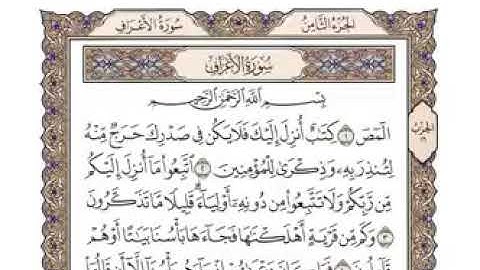 سُورَةُ الأَعْرَافِ
الجُزْءُ الثَّامِنُ
سُورَةُ الأَعْرَافِ
بِسْمِ ٱللَّهِ ٱلرَّحْمَٰنِ ٱلرَّحِيمِ
الٓمٓصٓ ١ كِتَٰبٌ أُنزِلَ إِلَيْكَ فَلَا يَكُن فِي صَدْرِكَ حَرَجٌ مِّنْهُ
لِتُنذِرَ بِهِۦ وَذِكْرَىٰ لِلْمُؤْمِنِينَ ٢ ٱتَّبِعُوا۟ مَآ أُنزِلَ إِلَيْكُم
مِّن رَّبِّكُمْ وَلَا تَتَّبِعُوا۟ مِن دُونِهِۦٓ أَوْلِيَآءَ ۗ قَلِيلًا مَّا تَذَكَّرُونَ
٣ وَكَم مِّن قَرْيَةٍ أَهْلَكْنَٰهَا فَجَآءَهَا بَأْسُنَا بَيَٰتًا أَوْ هُمْ
الحِزْب